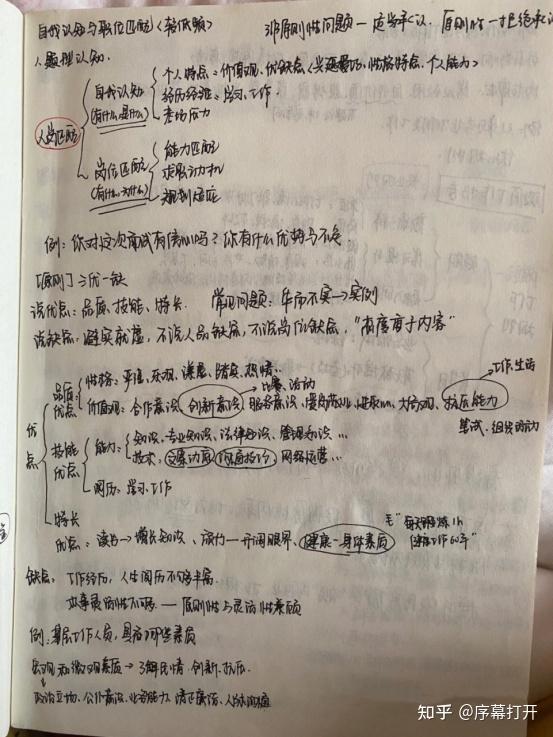 自我认知与职位匹配<较低频>
非原则性问题一定学承认，原则性一才拒绝承认
1. 题型认知
人岗匹配
自我认知
(有什么,是什么)
个人特点=价值观、优缺点<兴趣爱好、性格特点、个人能力>
经历经验=学习、工作
岗位匹配
能力匹配
求职动机
规划适应
例：你对这次面试有信心吗？你有什么优势与不足
[原则] 三优一缺
说优点：品质、技能、特长
常见问题：华而不实→实例
说缺点：避实就虚，不说人品缺点，不说岗位缺点，"态度重于内容"
优点
品质优点
性格：乐观、踏实、热情
→工作、生活
→比赛、活动
价值观：合作意识、创新意识、服务意识、大局观、抗压能力
笔试、组织活动
技能优点
能力：知识、专业知识、法律知识、管理知识 …
技术：
网络运营…
阅历：学习、工作
特长优点：读书→增长知识、旅行一开阔眼界、健康一身体素质
毛"每天锻炼1h
健康工作60年"
缺点：工作经历，人生阅历不够丰富
办事灵活性不够 — 原则性与灵活性兼顾
例：基层工作人员，具备哪些素质
宏观和微观素质→了解民情、创新、抗压
政治立场、公仆意识、业务能力、清正廉洁、人际沟通
知乎 @序幕打开